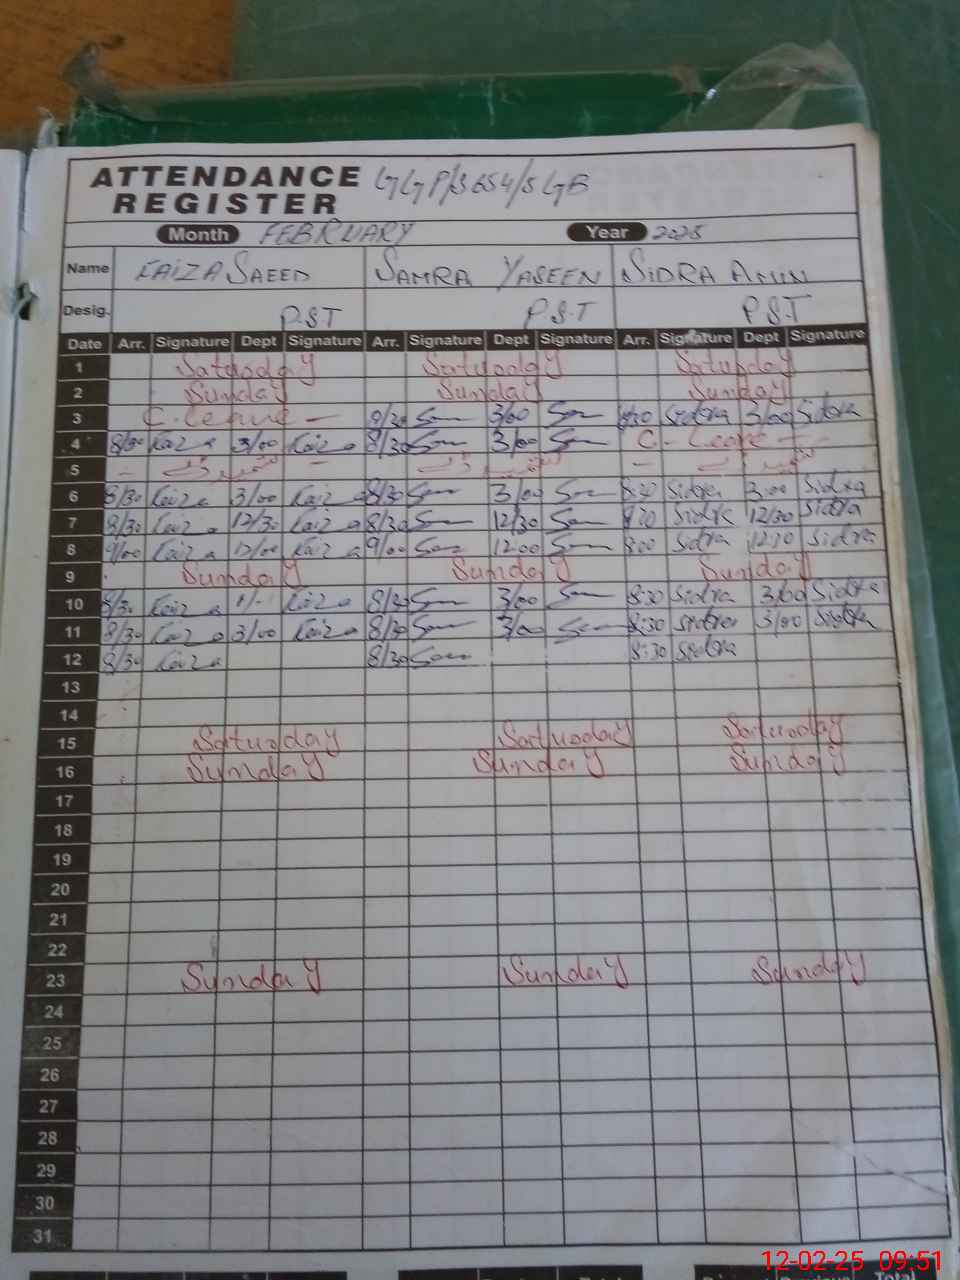 ATTENDANCE REGISTER
Month FEBRUARY Year 2025
Name FAIZA SAEED SAMRA YASEEN SIDRA AMIN
Desig. P.S.T P.S.T P.S.T
Date Arr. Signature Dept Signature Arr. Signature Dept Signature Arr. Signature Dept Signature
1 Saturday Saturday Saturday
2 Sunday Sunday Sunday
3 C. Leave - 8/30 Sam 3/00 Sam 8:30 Sidra 3/00 Sidra
4 8/30 Faiza 3/00 Faiza 8/30 Sam 3/00 Sam C - Leave -
5 - کشمیر ڈے - کشمیر ڈے - کشمیر ڈے
6 8/30 Faiza 3/00 Faiza 8/30 Sam 3/00 Sam 8:30 Sidra 3:00 Sidra
7 8/30 Faiza 12/30 Faiza 8/30 Sam 12/30 Sam Sidra 12/30 Sidra
8 9/00 Faiza 12/00 Faiza 9/00 Sam 12:00 Sam Sidra Sidra
9 Sunday Sunday Sunday
10 8/30 Faiza Faiza 8/30 Sam 3/00 Sam 8:30 Sidra 3/00 Sidra
11 8/30 Faiza 3/00 Faiza 8/30 Sam 3/00 Sam 8:30 Sidra 3/00 Sidra
12 8/30 Faiza 8/30 Sam 8:30 Sidra
13
14
15 Saturday Saturday Saturday
16 Sunday Sunday Sunday
17
18
19
20
21
22
23 Sunday Sunday Sunday
24
25
26
27
28
29
30
31
12-02-25 09:51